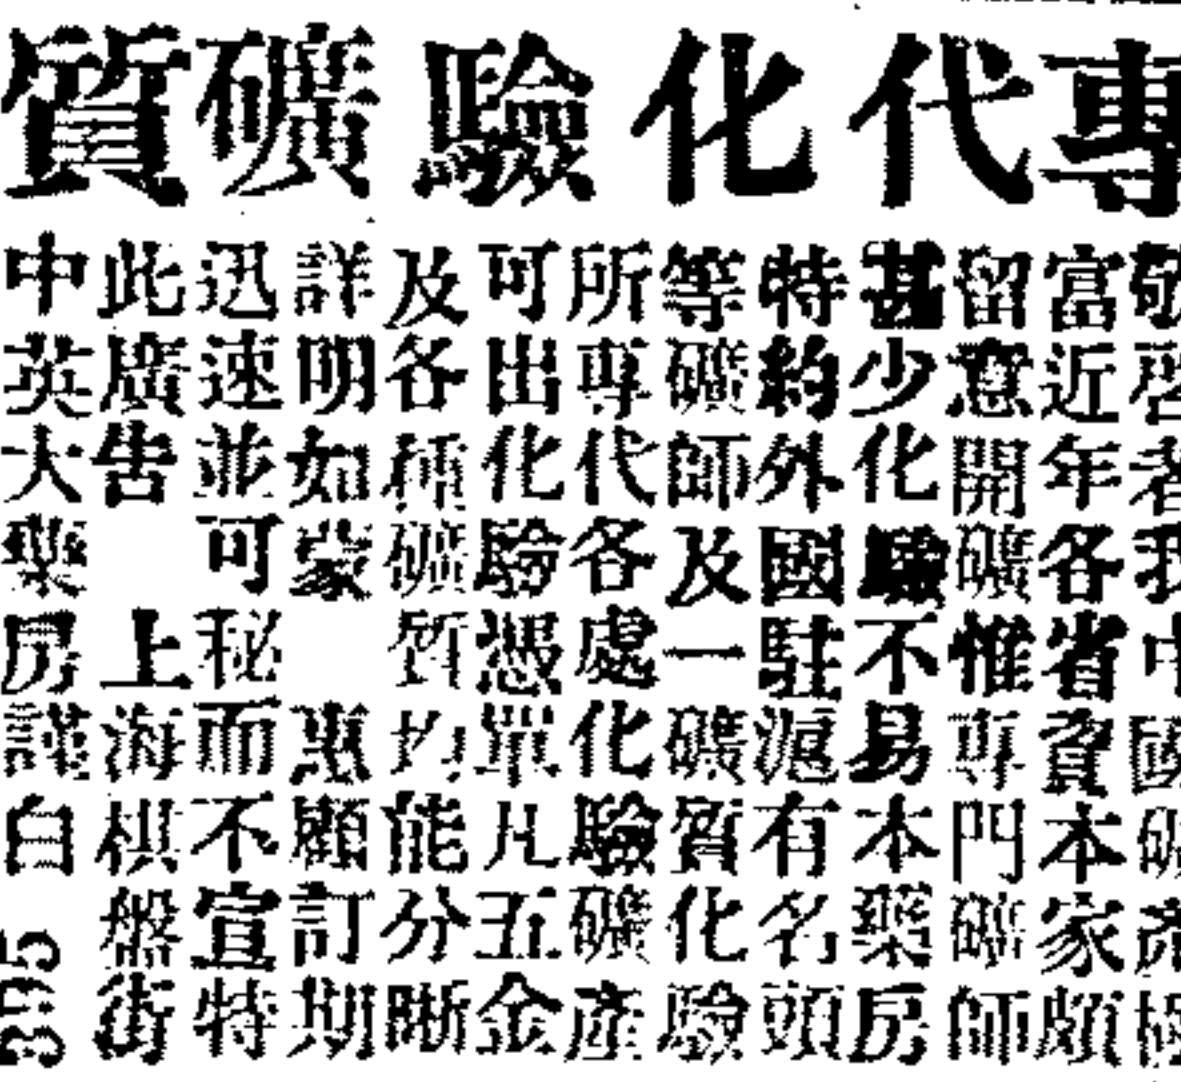 專代化驗礦質
敬啓者我中國礦產極
富近年各省資本家頗
留意開礦惟專門礦師
甚少化驗不易本藥房
特約外國駐滬有名頭
等礦師及一礦質化驗
所專代各處化驗礦產
可出化驗憑單凡五金
及各種礦質均能分晰
詳明如蒙 惠顧訂期
迅速並可秘而不宣特
此廣告 上海棋盤街
中英大藥房謹白
395